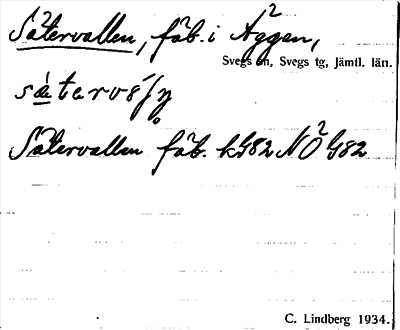 Sätervallen, fäb. i Äggen,
Svegs sn, Svegs tg, Jämtl. län.
Sätervallen fäb. kG82 NÖ G82
C. Lindberg 1934.